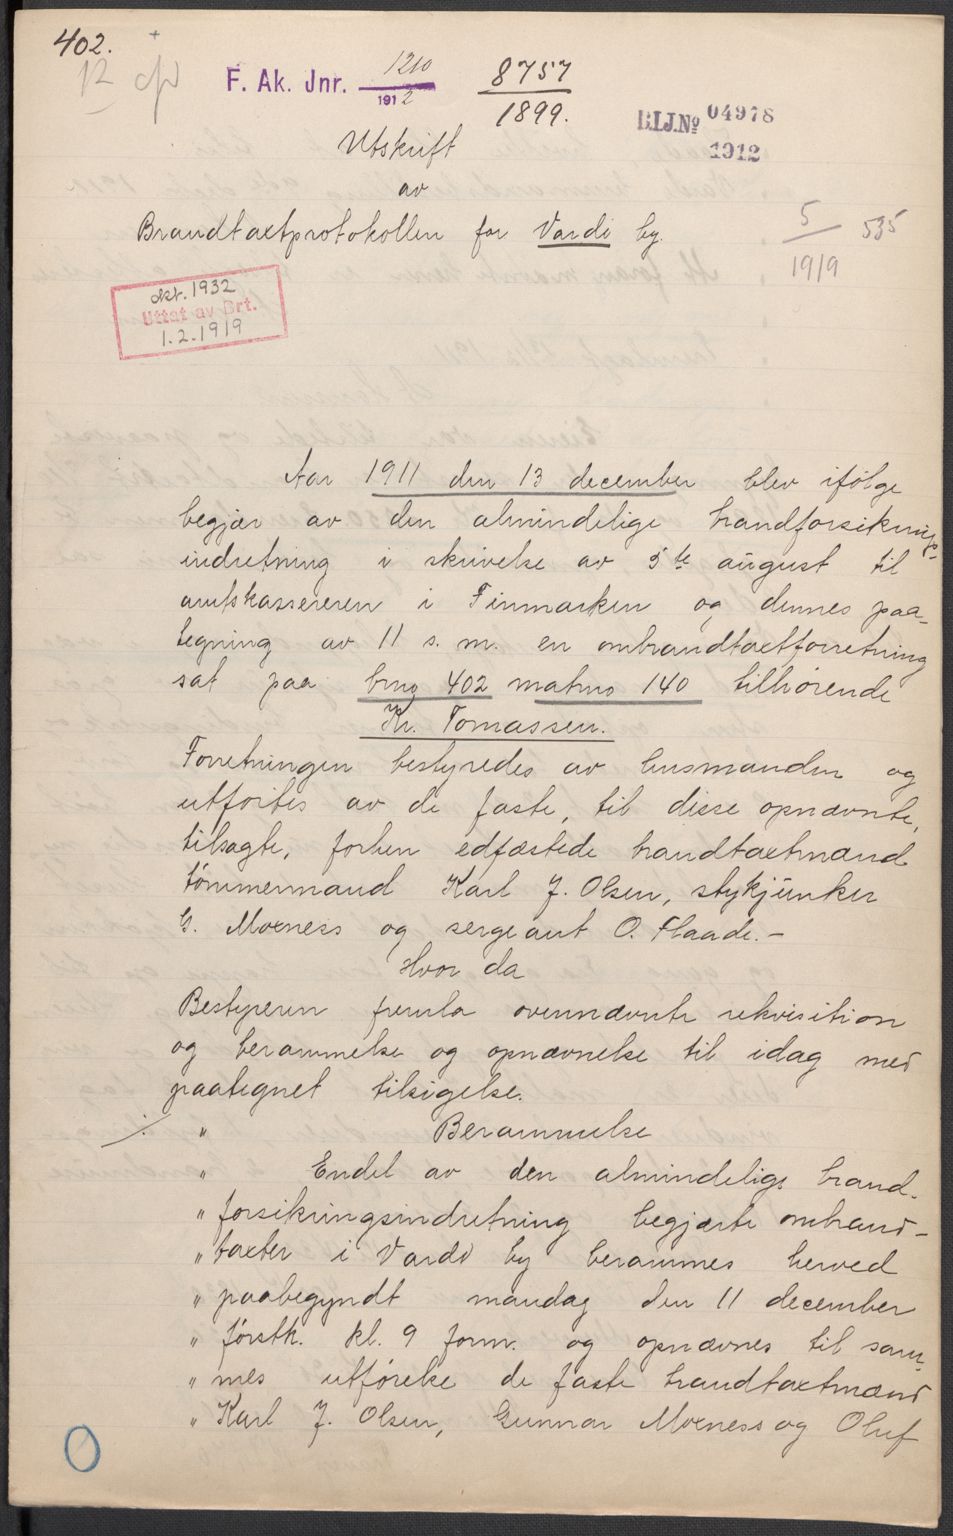 402.
12
F. Ak. Jnr. 1210
1912
8757
1899.
B.I.J.No 04978
1912
Utskrift
av
Brandtaxtprotokollen for Vardö by.
5
1919
535
okt. 1932
Uttat av Brt.
1.2.1919
Aar 1911 den 13 december blev ifölge
begjær av den almindelige brandforsikrings-
indretning i skrivelse av 5te august til
amtskassereren i Finmarken og dennes paa-
tegning av 11 s. m. en ombrandtaxtforretning
sat paa brno 402 matrno 140 tilhörende
Kr. Tomassen.
Forretningen bestyredes av lensmanden og
utförtes av de faste, til disse opnævnte,
tilsagte, forhen edfæstede brandtaxtmænd
tömmermand Karl J. Olsen, stykjunker
G. Moeness og sergeant O. Flaade. -
Hvor da
Bestyreren fremla ovennævnte rekvisition
og berammelse og opnævnelse til idag med
paategnet tilsigelse.
./. " Berammelse
" Endel av den almindelige brand-
" forsikringsindretning begjærte ombrand-
" taxter i Vardö by berammes herved
" paabegyndt mandag den 11 december
" förstk. kl. 9 form. og opnævnes til sam-
" mes utförelse de faste brandtaxtmænd
" Karl J. Olsen, Gunnar Moeness og Oluf
0